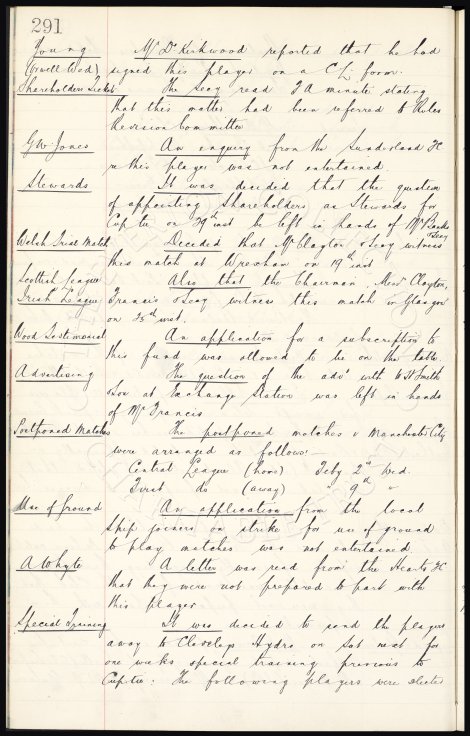 291
Young Mr D. Kirkwood reported that he had
(Orwell Wed) signed this player on a C L form.
Shareholders Ticket The Secy read F A minute stating
that this matter had been referred to Rules
Revision Committee
G W Jones An enquiry from the Sunderland FC
re this player was not entertained.
Stewards It was decided that the question
of appointing Shareholders as Stewards for
Cup tie on 29th inst be left in hands of Mr Banks
& Secy
Welsh Trial Match Decided that Mr Clayton & Secy witness
this match at Wrexham on 19th inst
Scottish League Also that the Chairman, Messrs Clayton,
Irish League Francis & Secy witness this match in Glasgow
on 25th inst.
Wood Testimonial An application for a subscription to
this fund was allowed to lie on the table.
Advertising The question of the advt with W H Smith
& Son at Exchange Station was left in hands
of Mr Francis
Postponed Matches The postponed matches v Manchester City
were arranged as follows:—
Central League (home) Feby 2nd Wed.
First do (away) " 9th "
Use of Ground An application from the local
Ship joiners on strike for use of ground
to play matches was not entertained
A Whyte A letter was read from the Hearts FC
that they were not prepared to part with
this player
Special Training It was decided to send the players
away to Hydro on Sat next for
one weeks special training previous to
Cup tie: The following players were selected